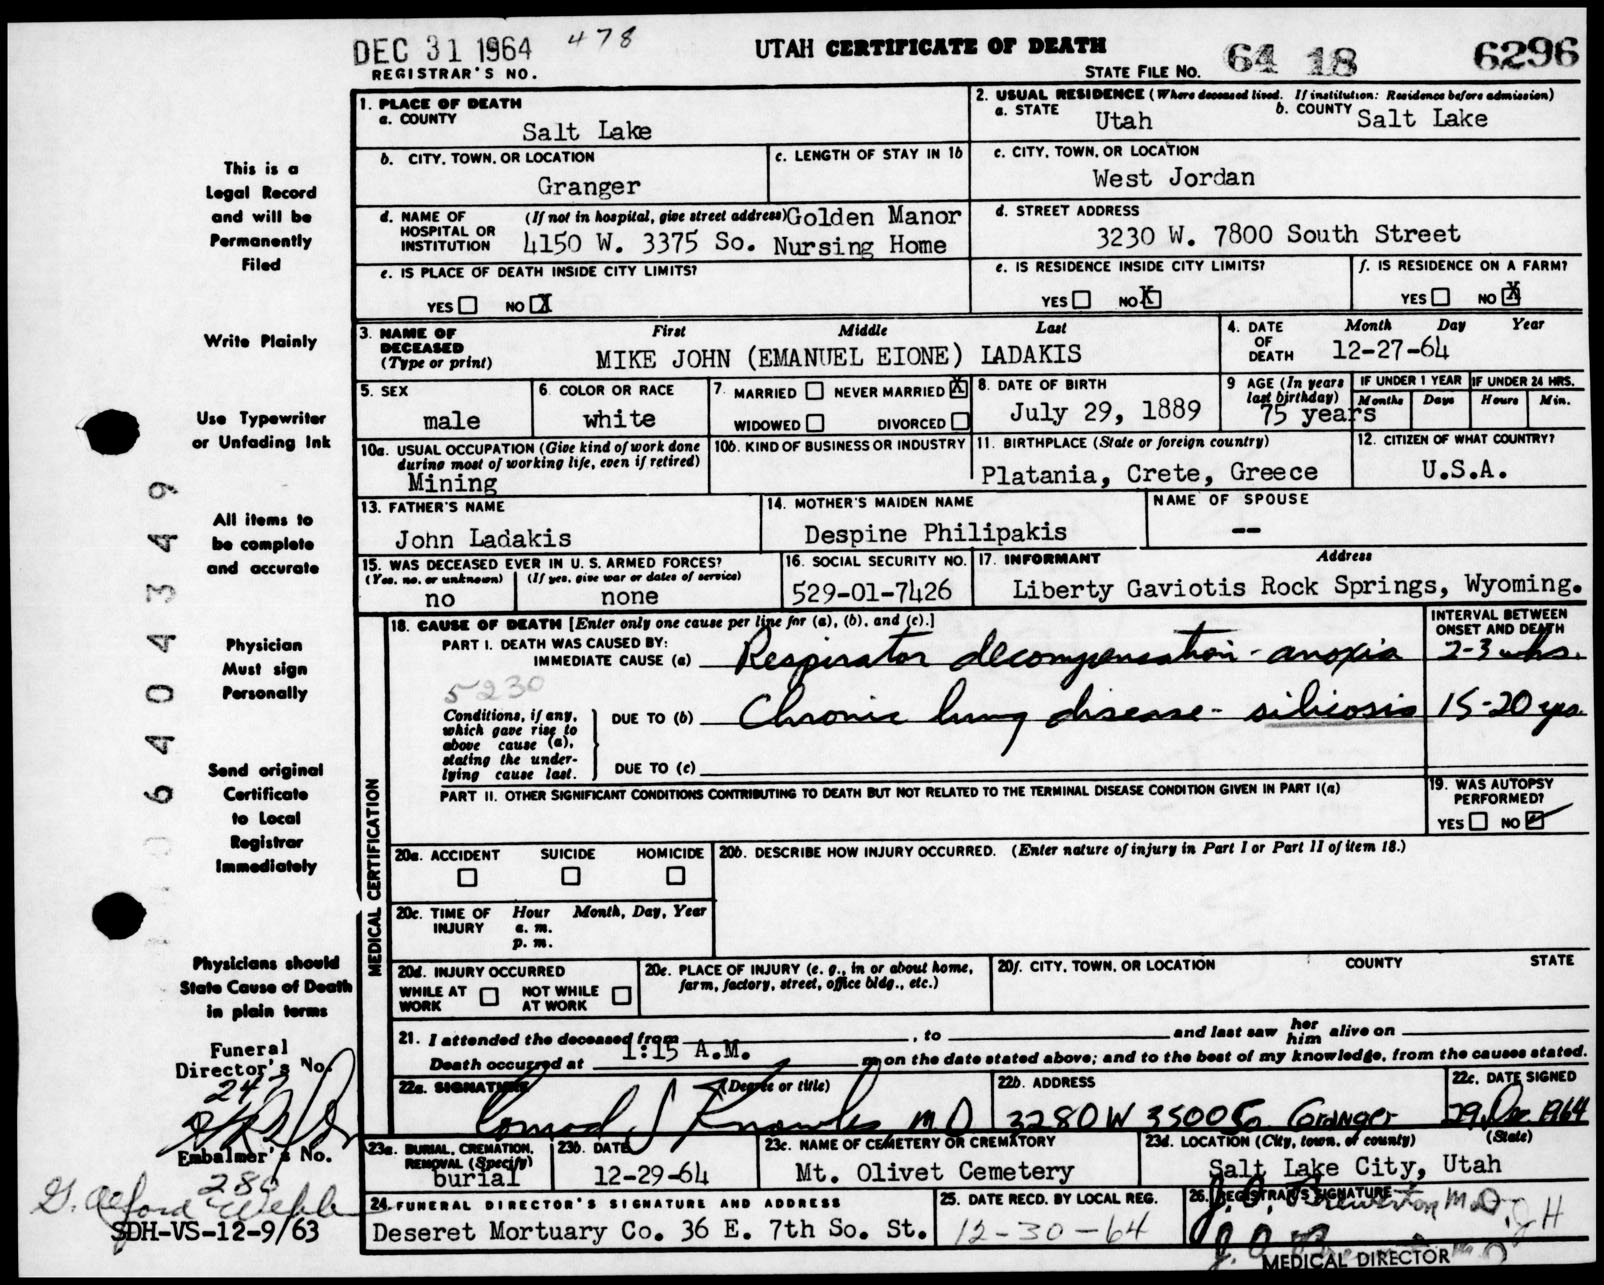 DEC 31 1964 478 UTAH CERTIFICATE OF DEATH 64 18 6296
REGISTRAR'S NO. STATE FILE NO.
1. PLACE OF DEATH
a. COUNTY
Salt Lake
2. USUAL RESIDENCE (Where deceased lived. If institution: Residence before admission)
a. STATE b. COUNTY
Utah Salt Lake
b. CITY, TOWN, OR LOCATION
Granger
c. LENGTH OF STAY IN 1b
c. CITY, TOWN, OR LOCATION
West Jordan
d. NAME OF HOSPITAL OR INSTITUTION (If not in hospital, give street address) Golden Manor
4150 W. 3375 So. Nursing Home
d. STREET ADDRESS
3230 W. 7800 South Street
e. IS PLACE OF DEATH INSIDE CITY LIMITS?
YES NO X
e. IS RESIDENCE INSIDE CITY LIMITS?
YES NO X
f. IS RESIDENCE ON A FARM?
YES NO X
3. NAME OF DECEASED (Type or print) First Middle Last
MIKE JOHN (EMANUEL EIONE) LADAKIS
4. DATE OF DEATH Month Day Year
12-27-64
5. SEX
male
6. COLOR OR RACE
white
7. MARRIED NEVER MARRIED X
WIDOWED DIVORCED
8. DATE OF BIRTH
July 29, 1889
9 AGE (In years last birthday)
75 years
IF UNDER 1 YEAR IF UNDER 24 HRS.
Months Days Hours Min.
10a. USUAL OCCUPATION (Give kind of work done
during most of working life, even if retired)
Mining
10b. KIND OF BUSINESS OR INDUSTRY
11. BIRTHPLACE (State or foreign country)
Platania, Crete, Greece
12. CITIZEN OF WHAT COUNTRY?
U.S.A.
13. FATHER'S NAME
John Ladakis
14. MOTHER'S MAIDEN NAME
Despine Philipakis
NAME OF SPOUSE
--
15. WAS DECEASED EVER IN U. S. ARMED FORCES?
(Yes, no, or unknown) (If yes, give war or dates of service)
no none
16. SOCIAL SECURITY NO.
529-01-7426
17. INFORMANT Address
Liberty Gaviotis Rock Springs, Wyoming.
MEDICAL CERTIFICATION
18. CAUSE OF DEATH [Enter only one cause per line for (a), (b), and (c).]
INTERVAL BETWEEN
ONSET AND DEATH
PART I. DEATH WAS CAUSED BY:
IMMEDIATE CAUSE (a) Respirator decompensation - anoxia 2-3 wks.
5230
Conditions, if any,
which gave rise to
above cause (a),
stating the under-
lying cause last.
DUE TO (b) Chronic lung disease - silicosis 15-20 yrs.
DUE TO (c)
PART II. OTHER SIGNIFICANT CONDITIONS CONTRIBUTING TO DEATH BUT NOT RELATED TO THE TERMINAL DISEASE CONDITION GIVEN IN PART I(a)
19. WAS AUTOPSY
PERFORMED?
YES NO
20a. ACCIDENT SUICIDE HOMICIDE
20b. DESCRIBE HOW INJURY OCCURRED. (Enter nature of injury in Part I or Part II of item 18.)
20c. TIME OF INJURY Hour Month, Day, Year
a. m.
p. m.
20d. INJURY OCCURRED
WHILE AT WORK NOT WHILE AT WORK
20e. PLACE OF INJURY (e. g., in or about home,
farm, factory, street, office bldg., etc.)
20f. CITY, TOWN, OR LOCATION COUNTY STATE
21. I attended the deceased from , to and last saw her him alive on
Death occurred at 1:15 A.M. m on the date stated above; and to the best of my knowledge, from the causes stated.
22a. SIGNATURE (Degree or title)
Conrad S Knowles MD
22b. ADDRESS
3280 W 3500 So. Granger
22c. DATE SIGNED
29 Dec. 1964
23a. BURIAL, CREMATION,
REMOVAL (Specify)
burial
23b. DATE
12-29-64
23c. NAME OF CEMETERY OR CREMATORY
Mt. Olivet Cemetery
23d. LOCATION (City, town, or county) (State)
Salt Lake City, Utah
24. FUNERAL DIRECTOR'S SIGNATURE AND ADDRESS
Deseret Mortuary Co. 36 E. 7th So. St.
25. DATE RECD. BY LOCAL REG.
12-30-64
26. REGISTRAR'S SIGNATURE
MEDICAL DIRECTOR
This is a
Legal Record
and will be
Permanently
Filed
Write Plainly
Use Typewriter
or Unfading Ink
All items to
be complete
and accurate
Physician
Must sign
Personally
Send original
Certificate
to Local
Registrar
Immediately
Physicians should
State Cause of Death
in plain terms
Funeral
Director's No.
Embalmer's No.
SDH-VS-12-9/63
6404349